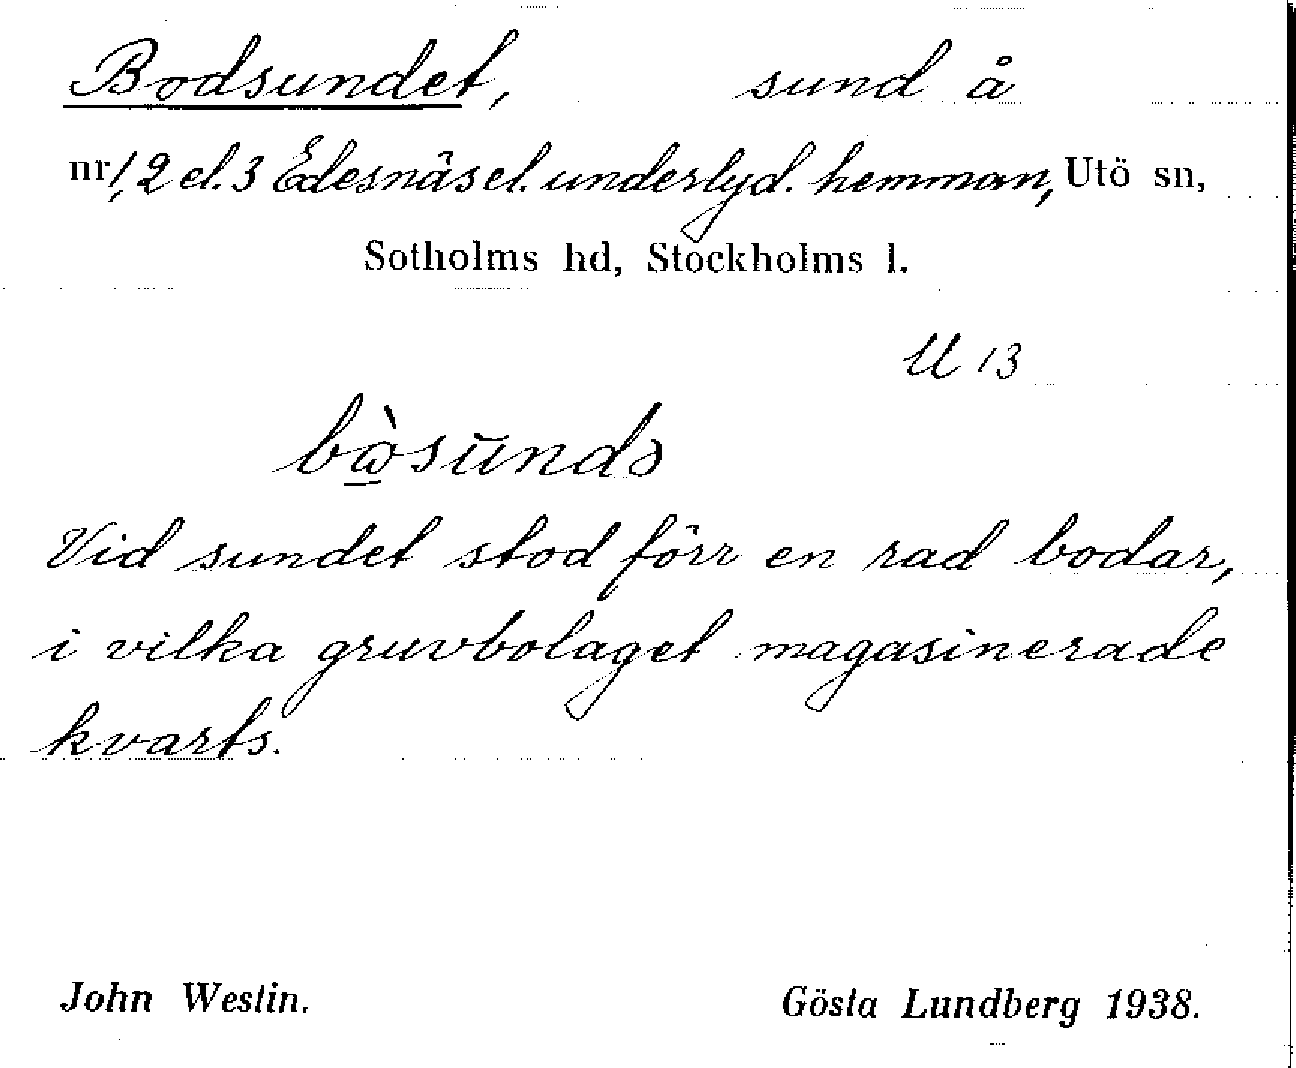 Bodsundet, sund å
nr 1, 2 el. 3 Edesnäs el. underlyd. hemman, Utö sn,
Sotholms hd, Stockholms l.
U 13
Vid sundet stod förr en rad bodar,
i vilka gruvbolaget magasinerade
kvarts.
John Westin. Gösta Lundberg 1938.